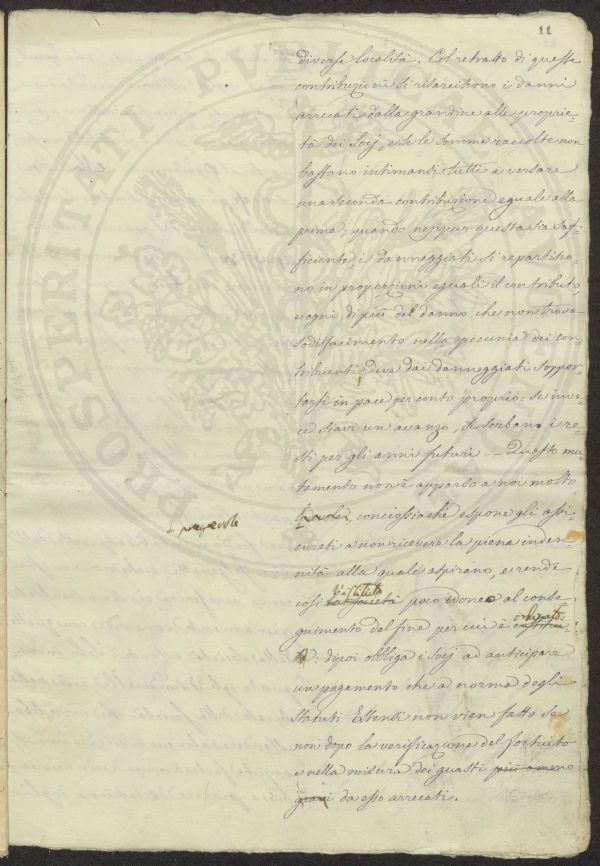 11
diverse località. Col retratto di queste
contribuzioni si risarciscono i danni
arrecati dalla grandine alle proprie-
tà dei Socj, e se le somme raccolte non
bastano intimansi tutti a versare
una seconda contribuzione eguale alla
prima; quando neppur questa sia suf-
ficiente, i danneggiati si repartisco-
no in proporzioni eguali il contributo,
e ogni di più del danno che non trova
sodisfacimento nella pecunia dei con-
tribuenti deve dai danneggiati soppor-
tarsi in pace per conto proprio: se inve-
ce siavi un avanzo, si serbano i re-
sti per gli anni futuri. — Questo mu-
tamento non è apparso a noi molto
conciossiachè espone gli assi-
pregevole
curati a non ricevere la piena inden-
nità alla quale aspirano, e rende
l'istituto
così la Società poco idoneo al conse-
guimento del fine per cui è
ordinato:
dipoi obbliga i Socj ad anticipare
un pagamento che a norma degli
Statuti non vien fatto se
non dopo la verificazione del fortuito
e nella misura dei guasti più o meno
gravi da esso arrecati.
PROSPERITATI PVBLICAE